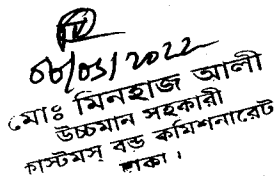 08/05/2022
মোঃ মিনহাজ আলী
উচ্চমান সহকারী
কাস্টমস্ বন্ড কমিশনারেট
ঢাকা।